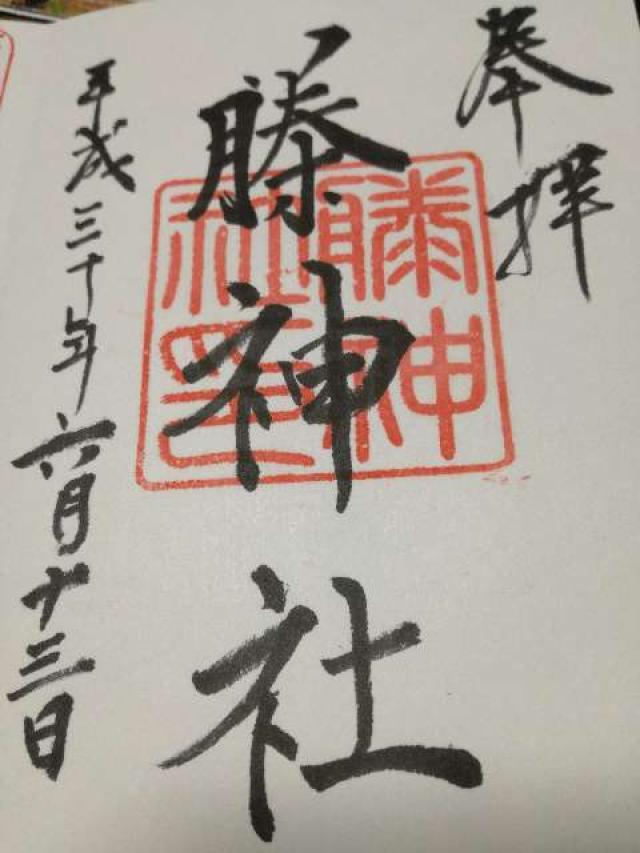 奉拝
滕神社
平成三十年六月十三日
滕神社印